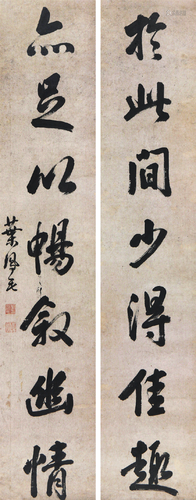 於此間少得佳趣
亦足以暢敘幽情
葉恭